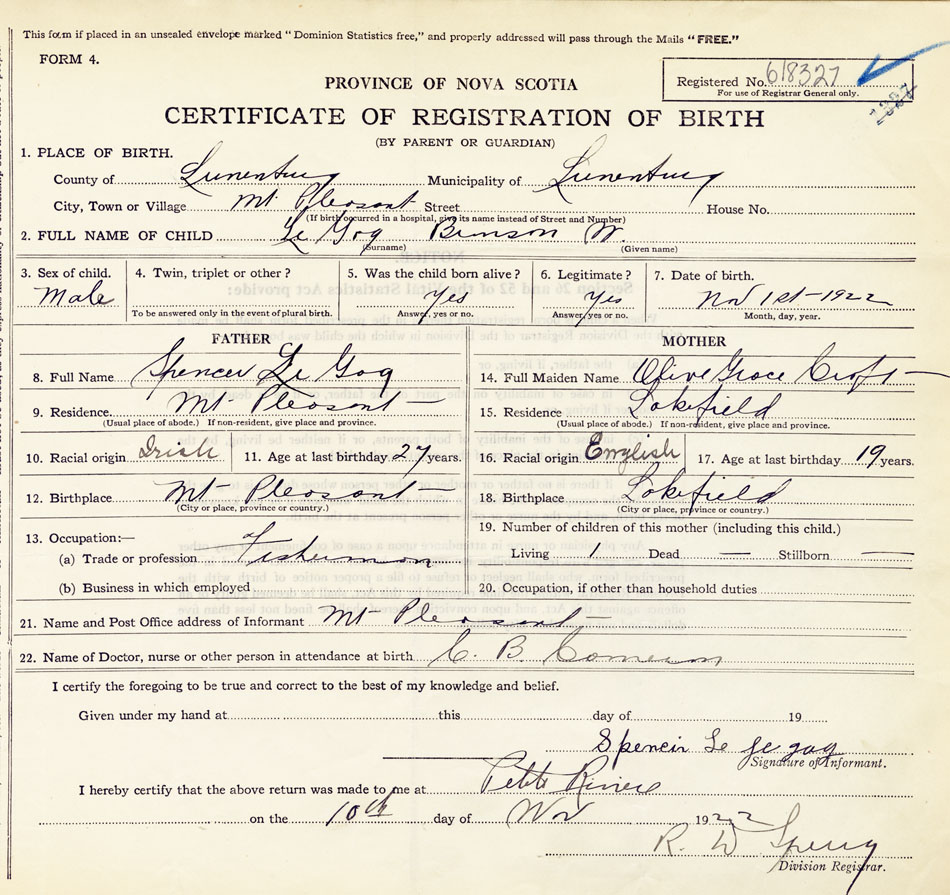 This form if placed in an unsealed envelope marked "Dominion Statistics free," and properly addressed will pass through the Mails "FREE."
FORM 4.
PROVINCE OF NOVA SCOTIA
Registered No. 618327
For use of Registrar General only.
CERTIFICATE OF REGISTRATION OF BIRTH
(BY PARENT OR GUARDIAN)
1. PLACE OF BIRTH.
County of Lunenburg Municipality of Lunenburg
City, Town or Village Mt Pleasant Street House No.
(If birth occurred in a hospital, give its name instead of Street and Number)
2. FULL NAME OF CHILD Le Gog W.
(Surname) (Given name)
3. Sex of child. 4. Twin, triplet or other? 5. Was the child born alive? 6. Legitimate? 7. Date of birth.
Male Yes Yes Nov 1st-1922
To be answered only in the event of plural birth. Answer, yes or no. Answer, yes or no. Month, day, year.
FATHER MOTHER
8. Full Name Spencer Le Gog 14. Full Maiden Name Olive Grace Croft
9. Residence Mt Pleasant 15. Residence Lakefield
(Usual place of abode.) If non-resident, give place and province. (Usual place of abode.) If non-resident, give place and province.
10. Racial origin Irish 11. Age at last birthday 27 years. 16. Racial origin English 17. Age at last birthday 19 years.
12. Birthplace Mt Pleasant 18. Birthplace Lakefield
(City or place, province or country.) (City or place, province or country.)
13. Occupation:— 19. Number of children of this mother (including this child.)
(a) Trade or profession Fisherman Living 1 Dead — Stillborn —
(b) Business in which employed 20. Occupation, if other than household duties
21. Name and Post Office address of Informant Mt Pleasant
22. Name of Doctor, nurse or other person in attendance at birth C. B. Cameron
I certify the foregoing to be true and correct to the best of my knowledge and belief.
Given under my hand at this day of 19
Spencir Le
Signature of Informant.
I hereby certify that the above return was made to me at Petite Riviere
on the 10th day of Nov 1922
R. W Sperry
Division Registrar.